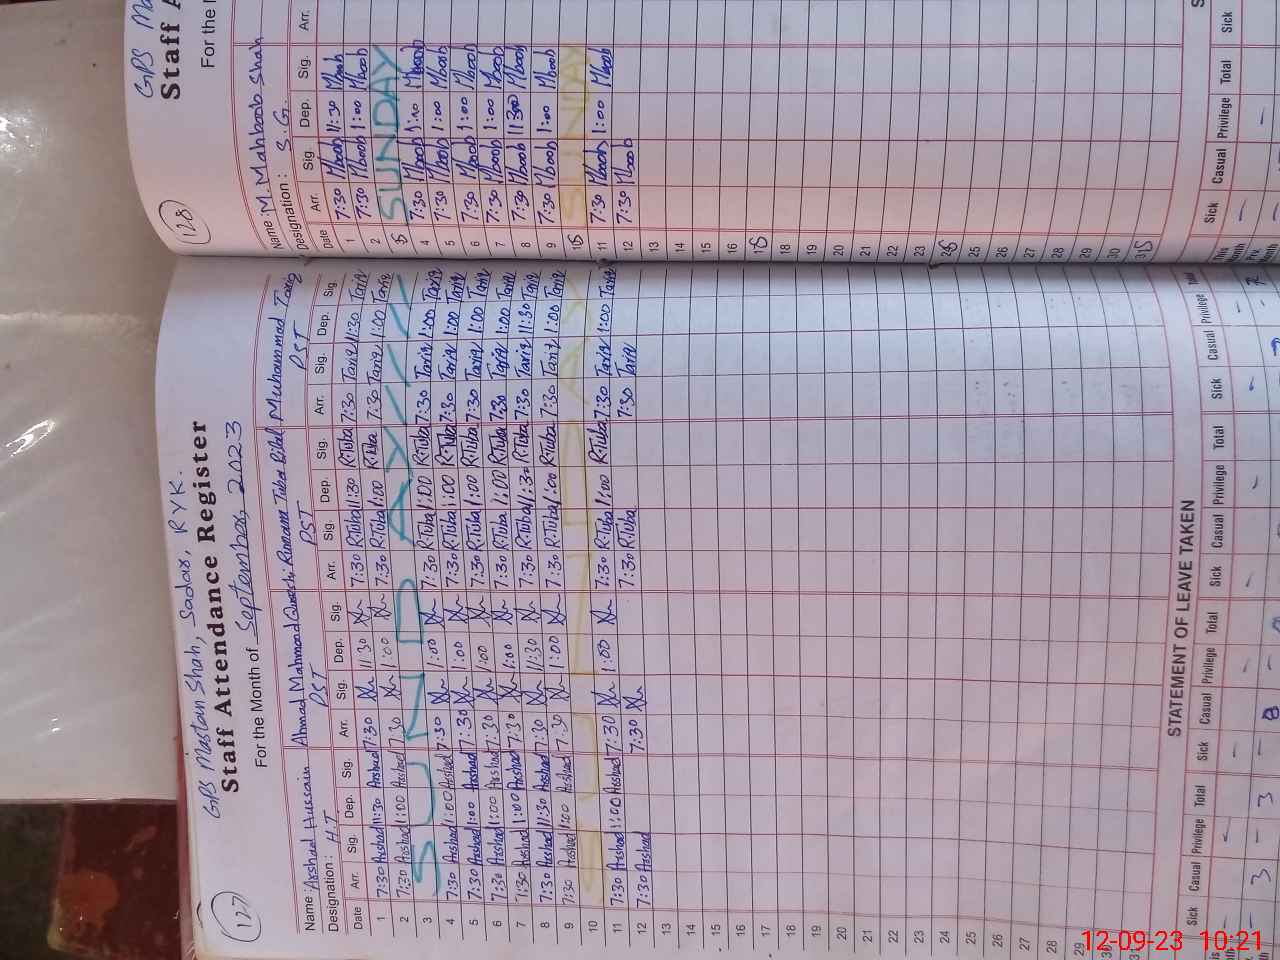 127
GPS Mastan Shah, Sadar, RYK.
Staff Attendance Register
For the Month of September, 2023
Name: Arshad Hussain Ahmad Mahmood Qureshi Ramama Tuba Bilal Muhammad Tariq
Designation: H.T. PST PST PST
Date Arr. Sig. Dep. Sig. Arr. Sig. Dep. Sig. Arr. Sig. Dep. Sig. Arr. Sig. Dep. Sig.
1 7:30 Arshad 11:30 Arshad 7:30 11:30 7:30 R.Tuba 11:30 R.Tuba 7:30 Tariq 11:30 Tariq
2 7:30 Arshad 1:00 Arshad 7:30 1:00 7:30 R.Tuba 1:00 R.Tuba 7:30 Tariq 1:00 Tariq
3 SUNDAY
4 7:30 Arshad 1:00 Arshad 7:30 1:00 7:30 R.Tuba 1:00 R.Tuba 7:30 Tariq 1:00 Tariq
5 7:30 Arshad 1:00 Arshad 7:30 1:00 7:30 R.Tuba 1:00 R.Tuba 7:30 Tariq 1:00 Tariq
6 7:30 Arshad 1:00 Arshad 7:30 1:00 7:30 R.Tuba 1:00 R.Tuba 7:30 Tariq 1:00 Tariq
7 7:30 Arshad 1:00 Arshad 7:30 1:00 7:30 R.Tuba 1:00 R.Tuba 7:30 Tariq 1:00 Tariq
8 7:30 Arshad 11:30 Arshad 7:30 11:30 7:30 R.Tuba 11:30 R.Tuba 7:30 Tariq 11:30 Tariq
9 7:30 Arshad 1:00 Arshad 7:30 1:00 7:30 R.Tuba 1:00 R.Tuba 7:30 Tariq 1:00 Tariq
10 SUNDAY
11 7:30 Arshad 1:00 Arshad 7:30 1:00 7:30 R.Tuba 1:00 R.Tuba 7:30 Tariq 1:00 Tariq
12 7:30 Arshad 7:30 7:30 R.Tuba 7:30 Tariq
13
14
15
16
17
18
19
20
21
22
23
24
25
26
27
28
29
30
STATEMENT OF LEAVE TAKEN
Sick Casual Privilege Total Sick Casual Privilege Total Sick Casual Privilege Total Sick Casual Privilege Total
3 - 3
128
GPS Ma
Staff A
For the M
Name: M. Mahboob Shah
Designation: S.G.
Date Arr. Sig. Dep. Sig. Arr.
1 7:30 Mboob 11:30 Mboob
2 7:30 Mboob 1:00 Mboob
SUNDAY
4 7:30 Mboob 1:00 Mboob
5 7:30 Mboob 1:00 Mboob
6 7:30 Mboob 1:00 Mboob
7 7:30 Mboob 1:00 Mboob
8 7:30 Mboob 11:30 Mboob
9 7:30 Mboob 1:00 Mboob
SUNDAY
11 7:30 Mboob 1:00 Mboob
12 7:30 Mboob
13
14
15
16
18
19
20
21
22
23
25
26
27
28
29
30
Sick Casual Privilege Total Sick
12-09-23 10:21